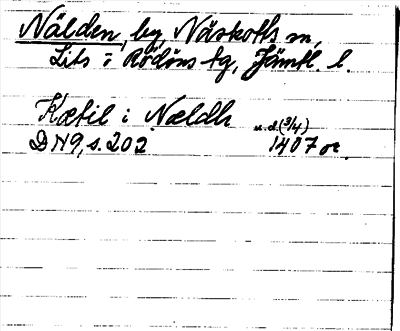 Nälden, by Näskotts sn,
Lits o Rödöns tg, Jämtl. l.
Kætil i Nældh u.d.(3/4)
DN 9, s. 202 1407 or.